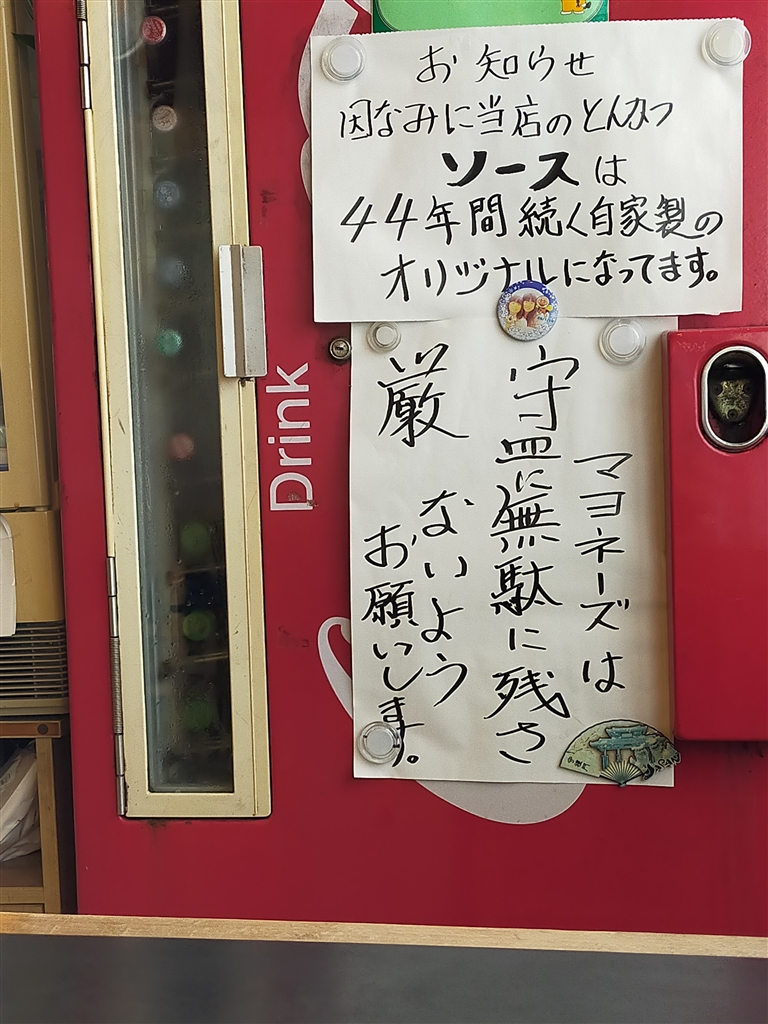 お知らせ
因なみに当店のとんかつ
ソースは
44年間続く自家製の
オリジナルになってます。
厳守
マヨネーズは
皿に無駄に残さ
ないよう
お願いします。
Drink